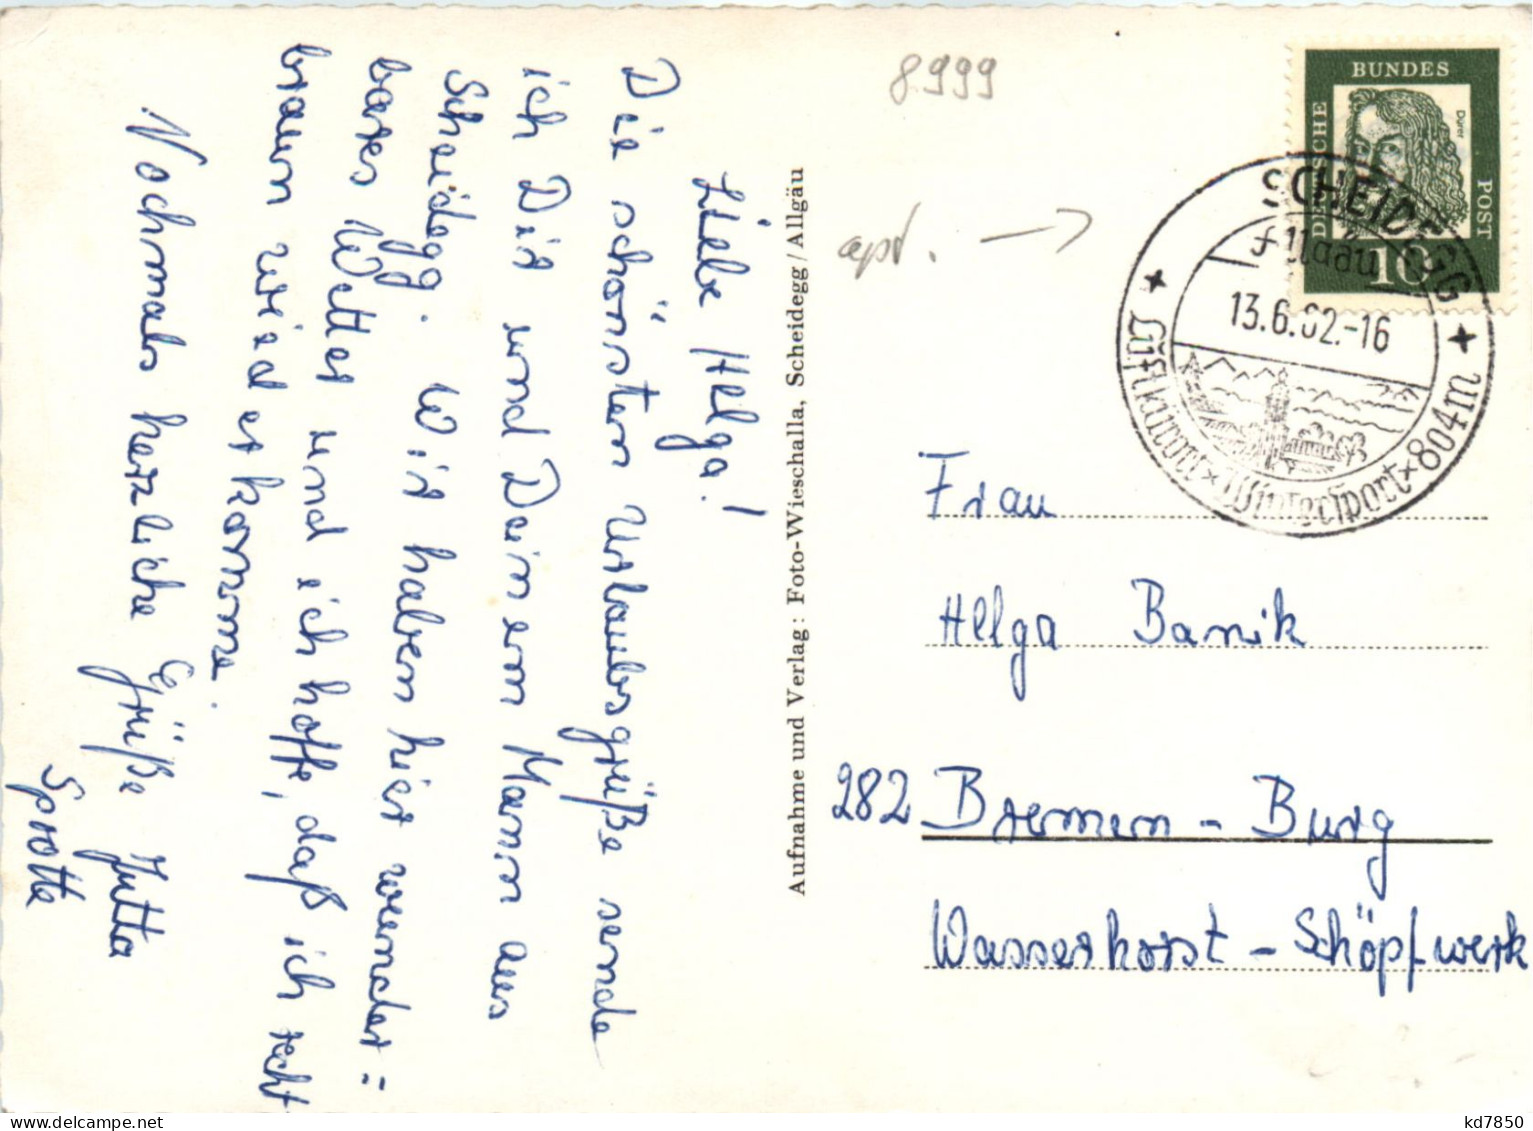 Liebe Helga!
Die schönsten Urlaubsgrüße sende
ich Dir und Deinem Mann aus
Scheidegg. Wir haben hier wunder=
bares Wetter und ich hoffe, daß ich recht
braun wiederkomme.
Nochmals herzliche Grüße Jutta
Sprotte
Aufnahme und Verlag: Foto-Wieschalla, Scheidegg/Allgäu
8999
apt. →
DEUTSCHE
BUNDES
POST
Dürer
10
SCHEIDEGG
Allgäu
13.6.62.-16
Luftkurort × Wintersport × 804m
Frau
Helga Banik
282 Bremen - Burg
Wasserhorst - Schöpfwerk
kd7850